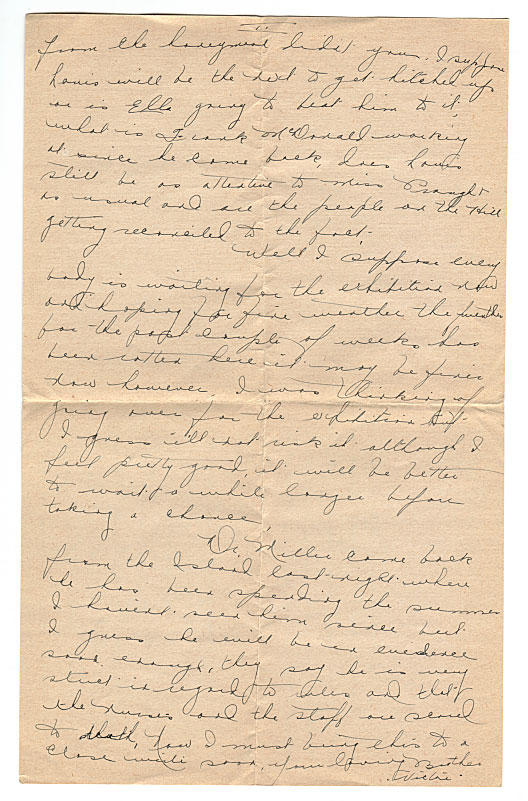 II
from the honeymoon hadnt you. I suppose
Louis will be the next to get hitched up
or is Ella going to beat him to it,
what is Frank McDonald working
at since he came back, does Louis
still be as attentive to Miss
as usual and are the people on the Hill
getting reconciled to the fact.
Well I suppose every
body is waiting for the exhibition now
and hoping for fine weather the weather
for the past couple of weeks has
been rotten here it may be finer
now however I was thinking of
going over for the exhibition but
I guess ill not risk it although I
feel pretty good, it will be better
to wait a while longer before
taking a chance,
Dr. Miller came back
from the Island last night where
he has been spending the summer
I havent seen him since but
I guess he will be in evidence
soon enough, they say he is very
strict in regard to rules and that
the nurses and the staff are scared
to death, now I must bring this to a
close write soon, your loving brother
Willie.